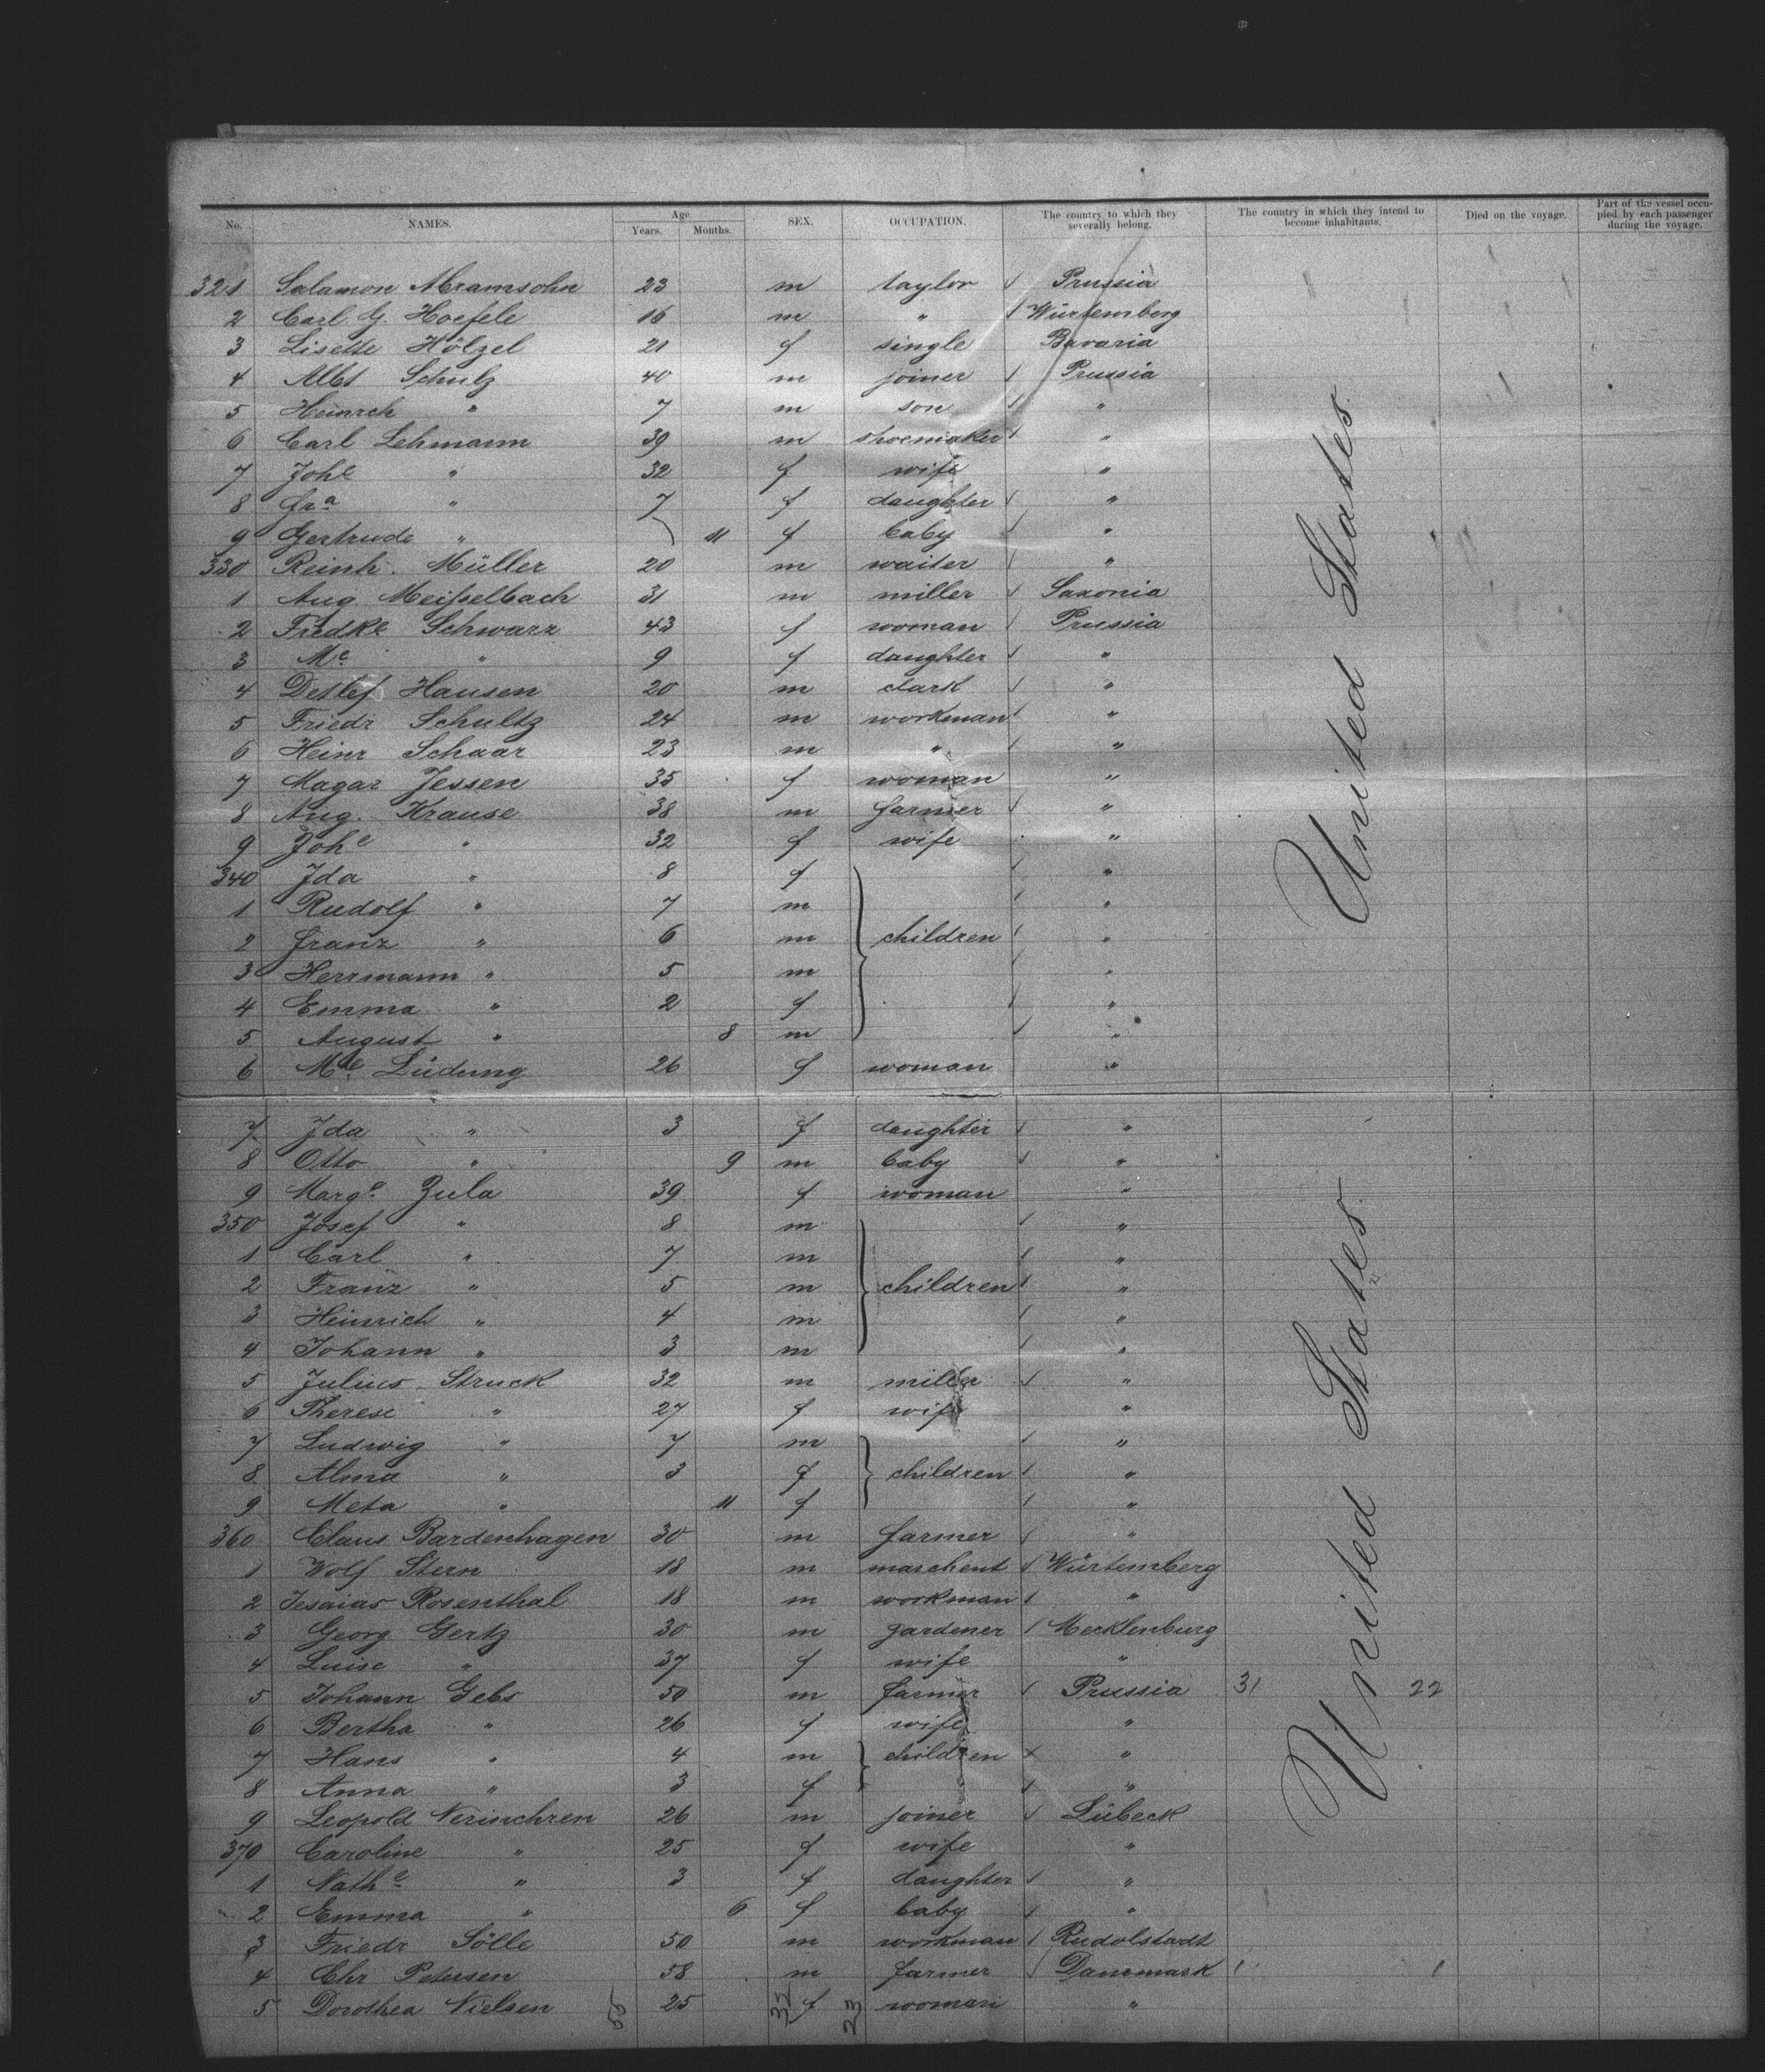 No. NAMES. Age Years. Months. SEX. OCCUPATION. The country to which they severally belong. The country in which they intend to become inhabitants. Died on the voyage. Part of the vessel occupied by each passenger during the voyage.
321 Salamon Abramsohn 23 m taylor Prussia
2 Carl G. Hoefele 16 m " Würtemberg
3 Lisette Hölzel 21 f single Bavaria
4 Albt Schulz 40 m joiner Prussia
5 Heinrch " 7 m son "
6 Carl Lehmann 39 m shoemaker "
7 Johe " 32 f wife "
8 Fra " 7 f daughter "
9 Gertrude " 11 f baby "
330 Reinh. Müller 20 m waiter "
1 Aug. Meißelbach 31 m miller Saxonia
2 Fredke Schwarz 43 f woman Prussia
3 Me " 9 f daughter "
4 Detlef Hansen 20 m clark "
5 Friedr Schultz 24 m workman "
6 Heinr Schaar 23 m " "
7 Magar Jessen 35 f woman "
8 Aug. Krause 38 m farmer "
9 Johe " 32 f wife "
340 Ida " 8 f "
1 Rudolf " 7 m "
2 Franz " 6 m children "
3 Herrmann " 5 m "
4 Emma " 2 f "
5 August " 8 m "
6 Me Lüdung 26 f woman "
United States.
7 Ida " 3 f daughter "
8 Otto " 9 m baby "
9 Marge Zula 39 f woman "
350 Josef " 8 m "
1 Carl " 7 m "
2 Franz " 5 m children "
3 Heinrich " 4 m "
4 Johann " 3 m "
5 Julius Struck 32 m miller "
6 Therese " 27 f wife "
7 Ludwig " 7 m "
8 Alma " 3 f children "
9 Meta " 11 f "
360 Claus Bardenhagen 30 m farmer "
1 Wolf Stern 18 m marchent Würtemberg
2 Jesaias Rosenthal 18 m workman "
3 Georg Gertz 30 m gardener Mecklenburg
4 Luise " 37 f wife "
5 Johann Gebs 50 m farmer Prussia 31 22
6 Bertha " 26 f wife "
7 Hans " 4 m children "
8 Anna " 3 f "
9 Leopold Nerinchren 26 m joiner Lübeck
370 Caroline " 25 f wife "
1 Nathe " 3 f daughter "
2 Emma " 6 f baby "
3 Friedr Sölle 50 m workman Rudolstadt
4 Chr Petersen 58 m farmer Danemark 1 1
5 Dorothea Nielsen 55 25 32 f 23 woman "
United States.